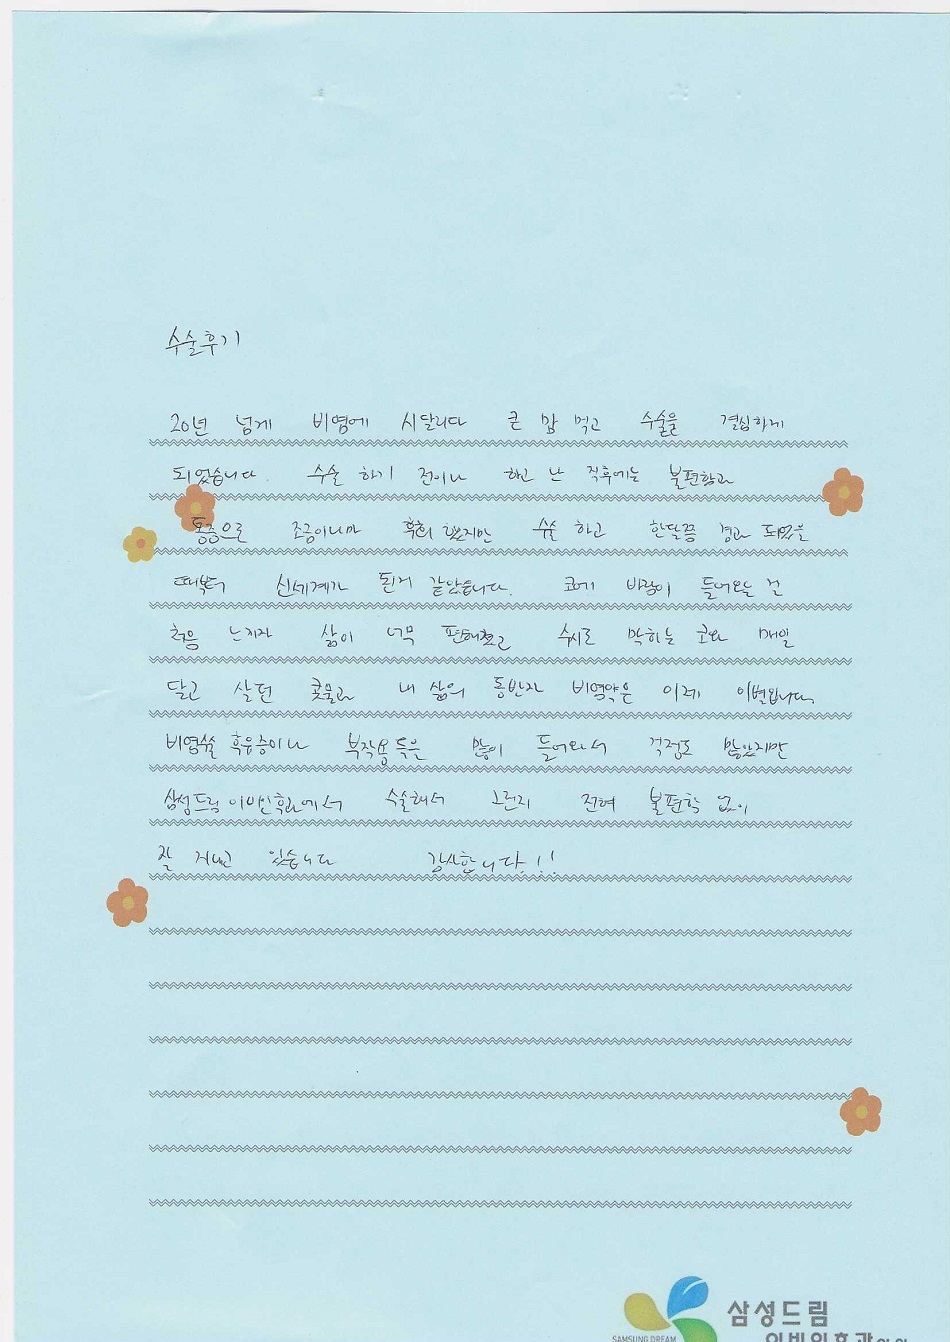 수술후기
20년 넘게 비염에 시달리다 큰 맘 먹고 수술을 결심하게
되었습니다. 수술 하기 전이나 하고 난 직후에는 불편함과
통증으로 조금이나마 후회 했지만 수술 하고 한달쯤 경과 되었을
때부터 신세계가 된거 같았습니다. 코에 바람이 들어오는 걸
처음 느끼자 삶이 너무 편해졌고 수시로 막히는 코와 매일
달고 살던 콧물과 내 삶의 동반자 비염약은 이제 이별입니다.
비염수술 후유증이나 부작용 등은 많이 들어와서 걱정도 많았지만
삼성드림이비인후과에서 수술해서 그런지 전혀 불편함 없이
잘 지내고 있습니다 감사합니다!!
SAMSUNG DREAM
삼성드림
이비인후과의원